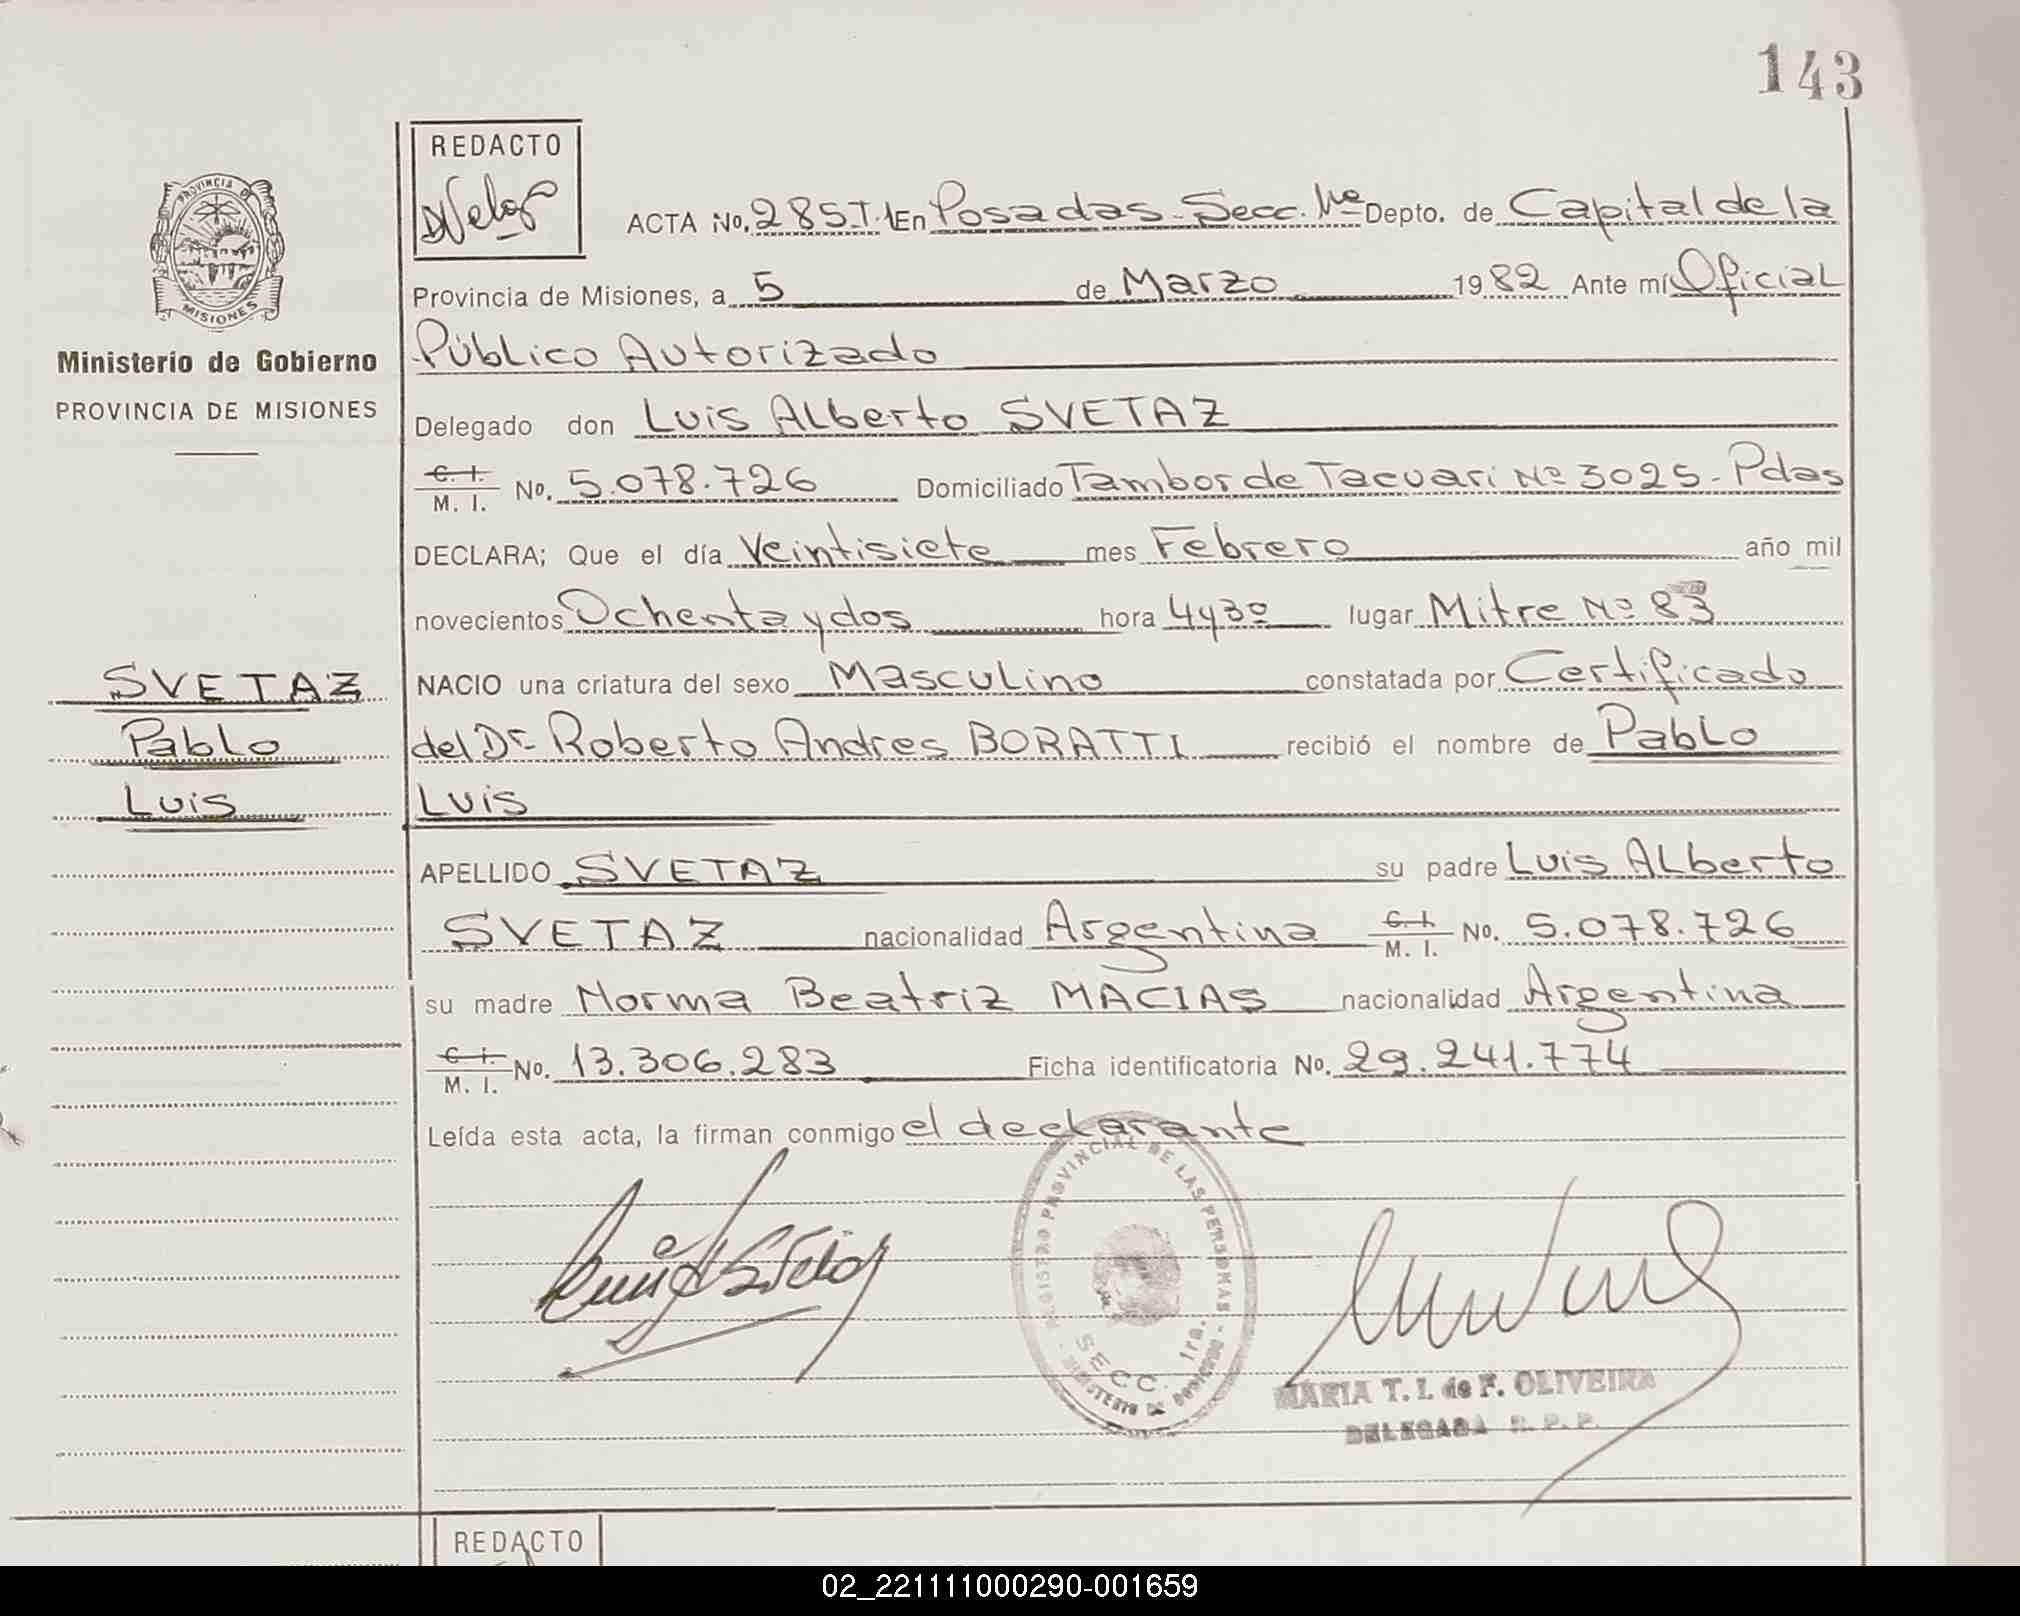 143
REDACTO
ACTA No. 285 T. 1 En Posadas - Secc. 1ra Depto. de Capital de la
PROVINCIA DE
MISIONES
Provincia de Misiones, a 5 de Marzo 1982 Ante mí Oficial
Ministerio de Gobierno
Público Autorizado
PROVINCIA DE MISIONES
Delegado don Luis Alberto SVETAZ
C. I.
M. I. No. 5.078.726 Domiciliado Tambor de Tacuari Nº 3025 - Pdas
DECLARA; Que el día Veintisiete mes Febrero año mil
novecientos Ochenta y dos hora 4 y 30 lugar Mitre Nº 83
SVETAZ
NACIO una criatura del sexo Masculino constatada por Certificado
Pablo
del Dr. Roberto Andres BORATTI recibió el nombre de Pablo
Luis
Luis
APELLIDO SVETAZ su padre Luis Alberto
SVETAZ nacionalidad Argentina C. I. M. I. No. 5.078.726
su madre Norma Beatriz MACIAS nacionalidad Argentina
C. I.
M. I. No. 13.306.283 Ficha identificatoria No. 29.241.774
Leída esta acta, la firman conmigo el declarante
REGISTRO PROVINCIAL DE LAS PERSONAS - MINISTERIO DE GOBIERNO -
SECC. 1ra.
MARIA T. I. de F. OLIVEIRA
DELEGADA R. P. P.
REDACTO
02_221111000290-001659